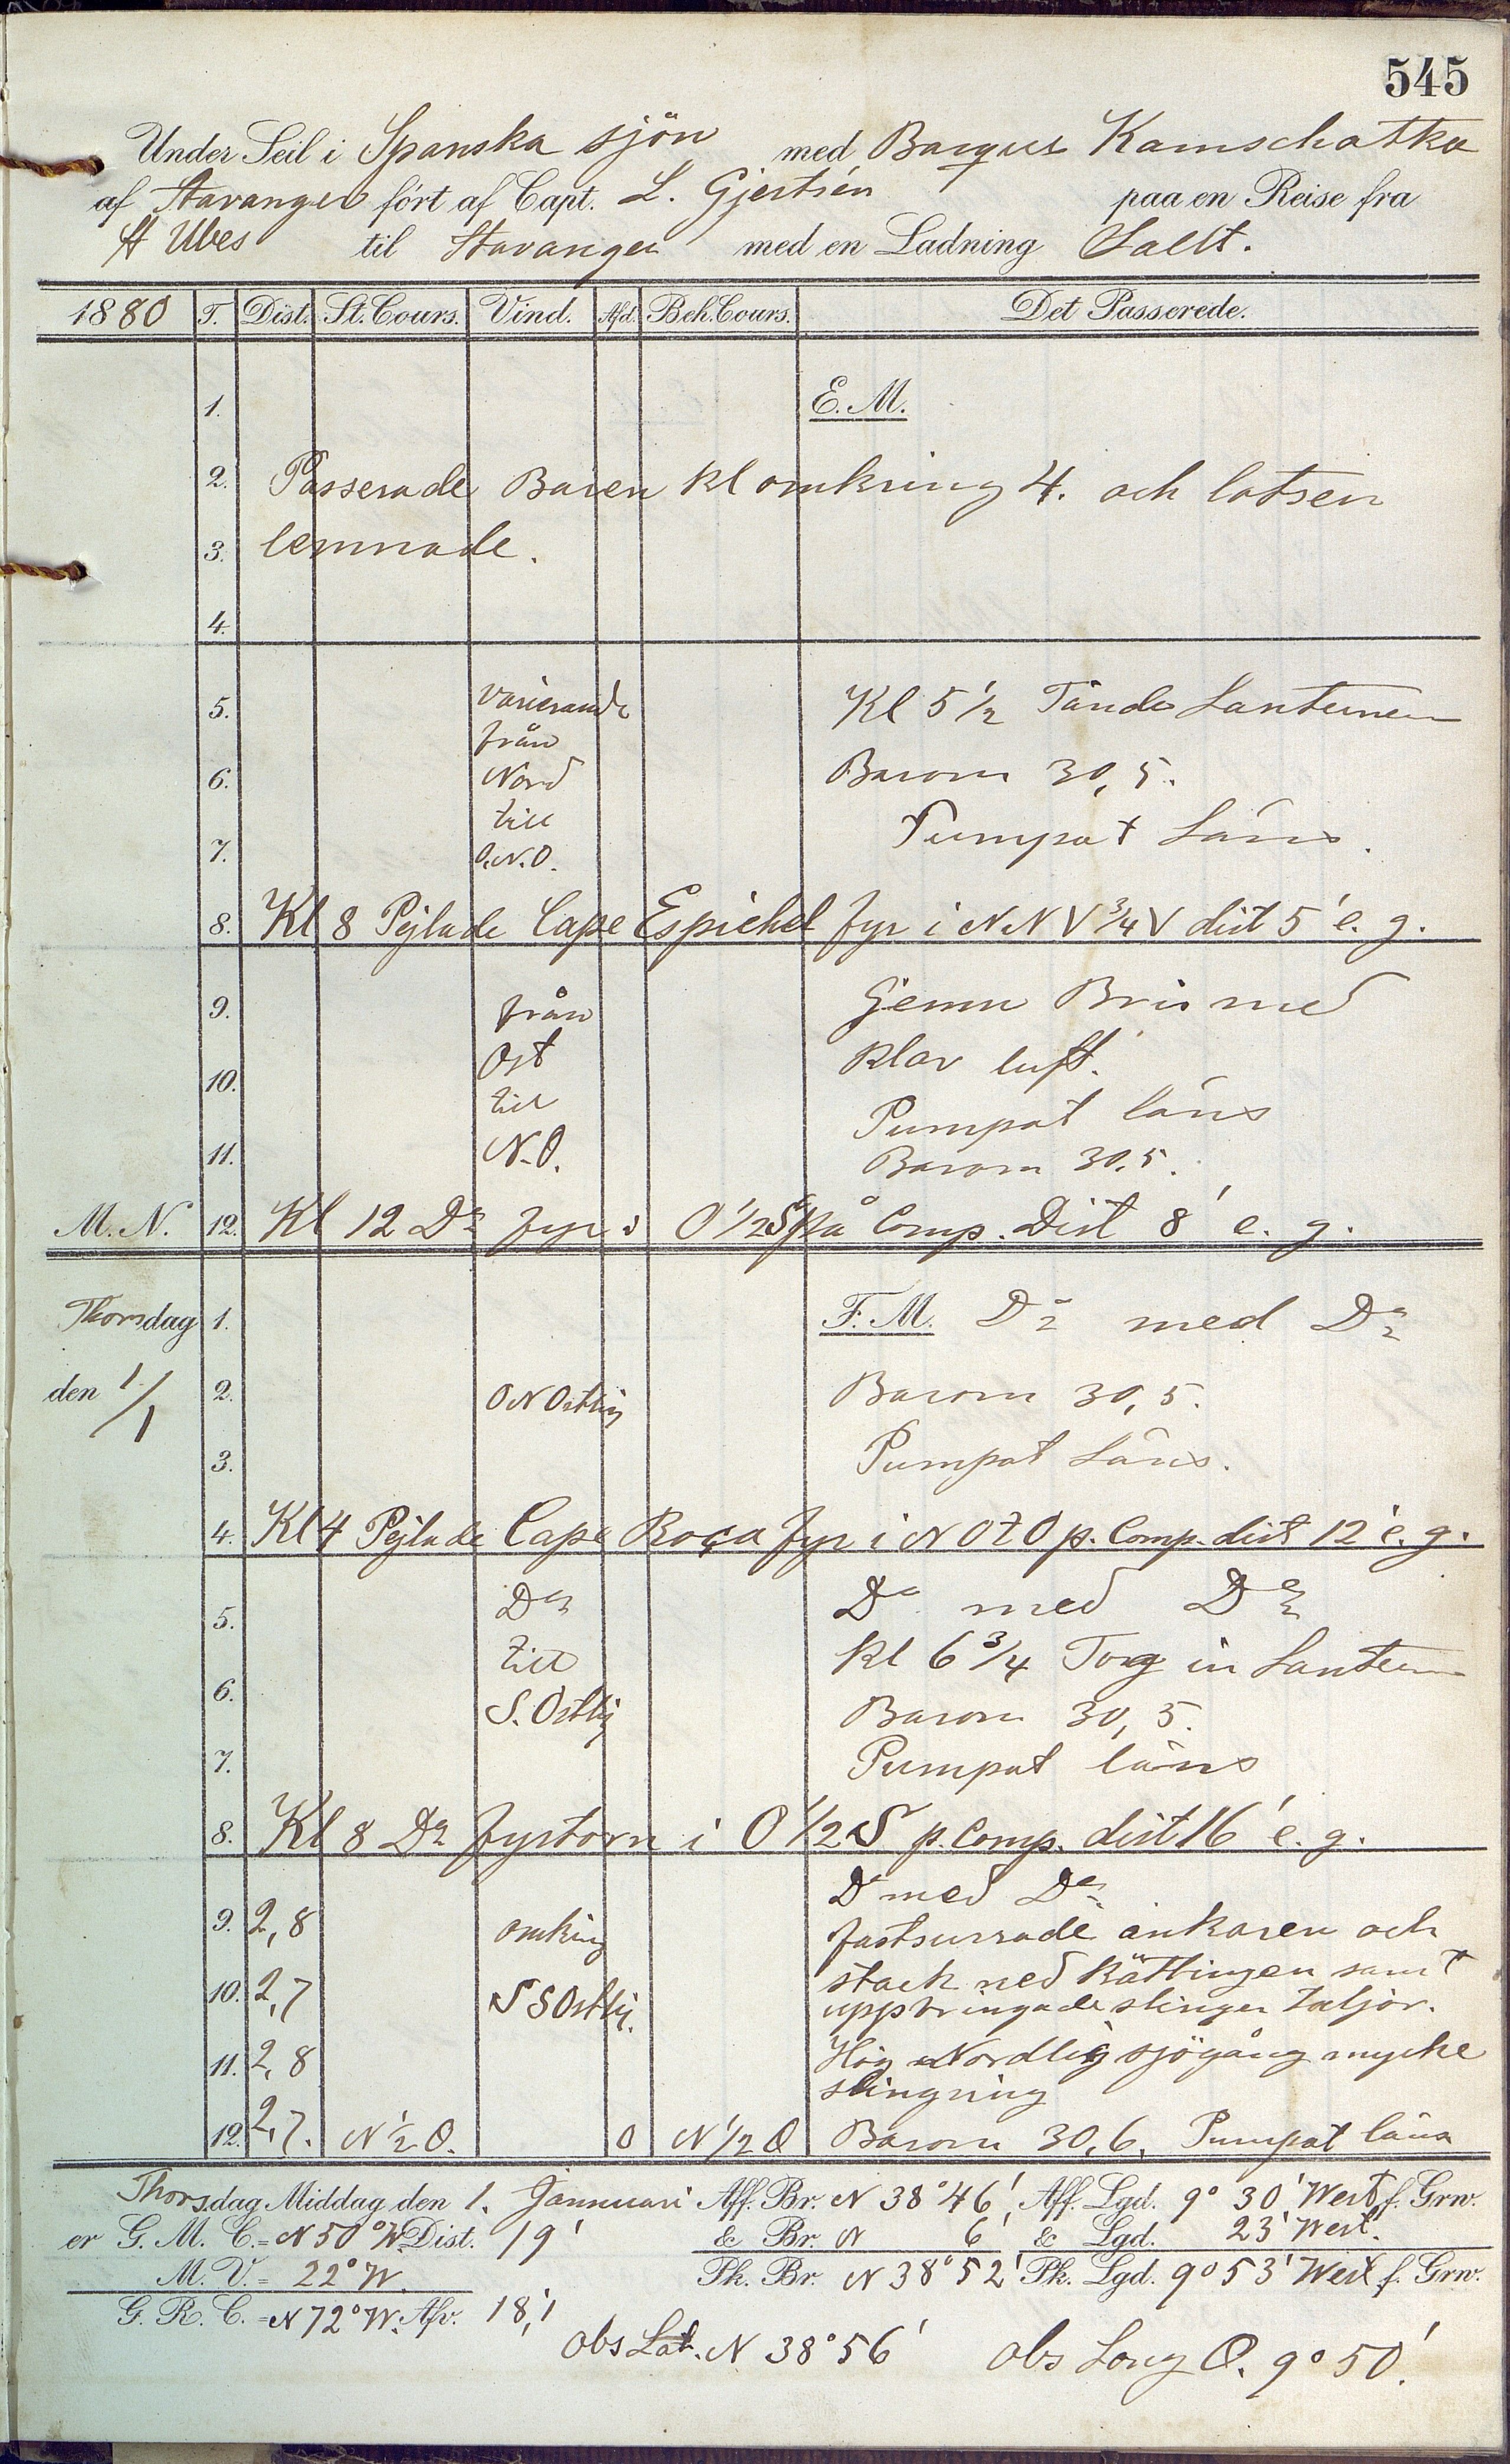 545
Under Seil i Spanska sjön med Barque Kamschatka
af Stavanger fört af Capt. L. Gjertsen paa en Reise fra
St Ubes til Stavanger med en Ladning Sallt.
1880 T. Dist. St. Cours. Vind. Afd. Beh. Cours. Det Passerede.
1. E. M.
2. Passerade Baren kl omkring 4. och lotsen
3. lemnade.
4.
5. varierande Kl 5 1/2 Tände Lanternen
från
6. Nord Barom 30,5.
till
7. O.N.O. Pumpat Läns.
8. Kl 8 Pejlade Cape Espichel fyr i N N V 3/4 V dist 5' e. g.
9. från Jemn Bris med
10. Ost klar luft.
till Pumpat läns
11. N.O. Barom 30.5.
M. N. 12. Kl 12 Do fyr i O 1/2 S på Comp. Dist 8' e. g.
Thorsdag 1. F. M. Do med Do
den 1/1 2. ON Ostlig Barom 30,5.
3. Pumpat Läns.
4. Kl 4 Pejlade Cape Roca fyr i N O t O p. Comp. dist 12' e. g.
5. Do Do med Do
till kl 6 3/4 Tog in Lantern
6. S. Ostlig Barom 30,5.
7. Pumpat läns
8. Kl 8 Do fystorn i O 1/2 S p. Comp. dist 16' e. g.
Do med Do
9. 2,8 omkring fastsurrade ankaren och
10. 2,7 S S Ostlig. stack ned kättingen samt
uppbringade slinger taljor.
11. 2,8 Hög Nordlig sjögång mycke
slingring
12. 2,7. N 1/2 O. 0 N 1/2 O Barom 30,6. Pumpat läns
Thorsdag Middag den 1. Jannuari Aff. Br. N 38° 46', Aff. Lgd. 9° 30' West f. Grw.
er G. M. C. = N 50° W. Dist. 19' & Br. N 6' & Lgd. 23' West.
M. V. = 22° W. Pk. Br. N 38° 52' Pk. Lgd. 9° 53' West f. Grw.
G. R. C. = N 72° W. Afv. 18,1
Obs Lat. N 38° 56' Obs Long O. 9° 50'.